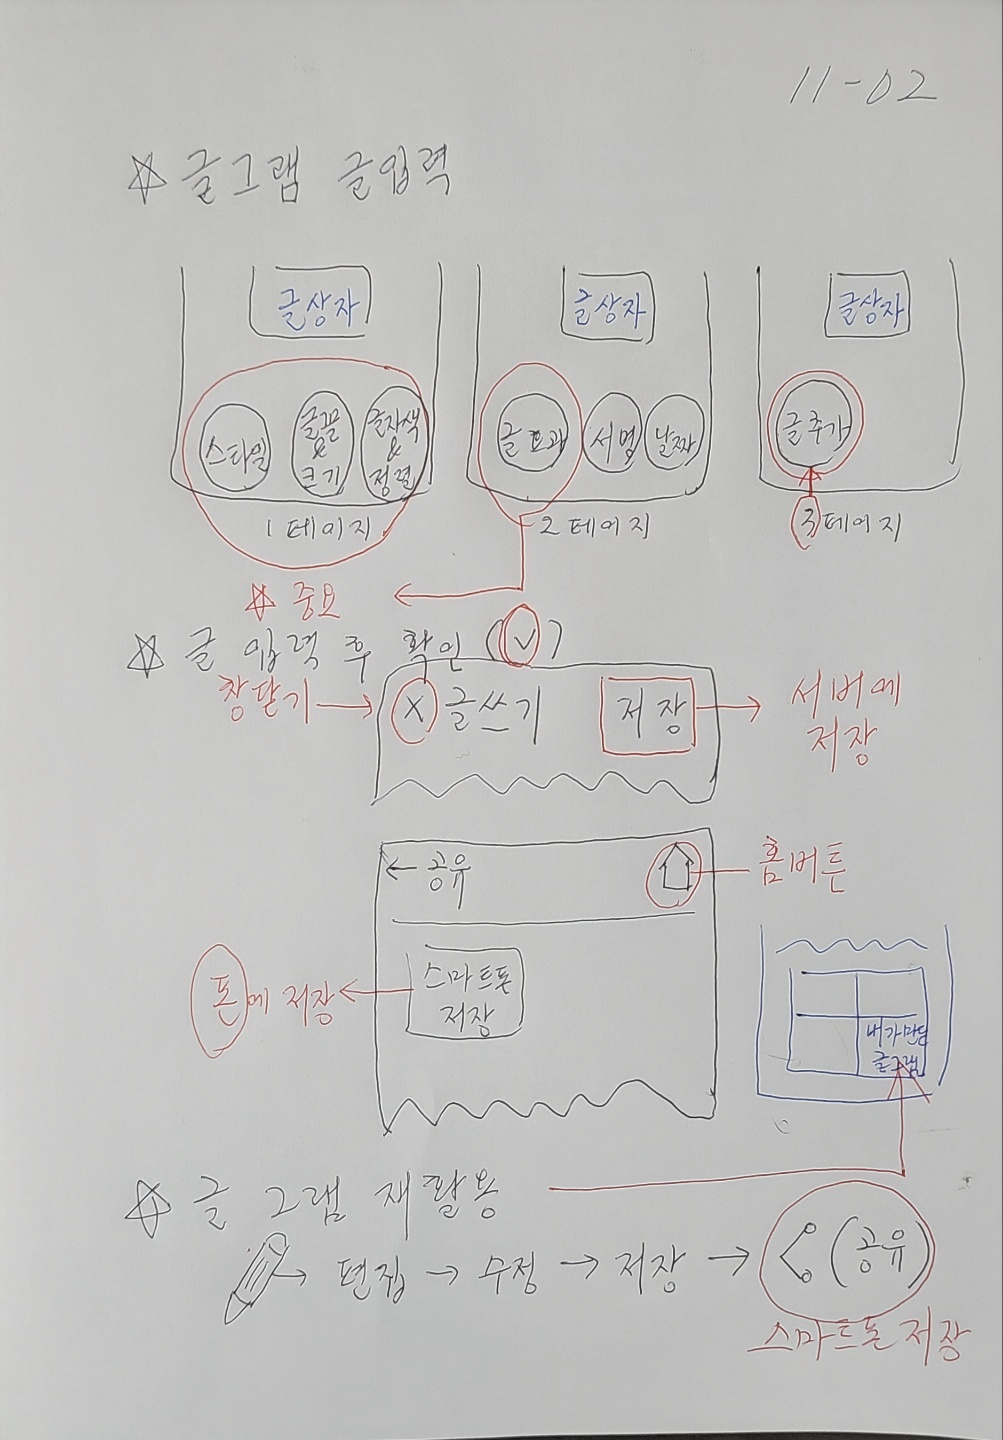 11-02
☆ 글그램 글입력
글상자
스타일
글꼴
&
크기
글자색
&
정렬
1페이지
글상자
글효과
서명
날짜
2페이지
글상자
글추가
3페이지
☆ 중요
☆ 글 입력 후 확인 (✓)
창닫기
X 글쓰기
저장
서버에
저장
← 공유
홈버튼
스마트폰
저장
폰에 저장
내가만든
글그램
☆ 글 그램 재활용
→ 편집 → 수정 → 저장 → (공유)
스마트폰 저장